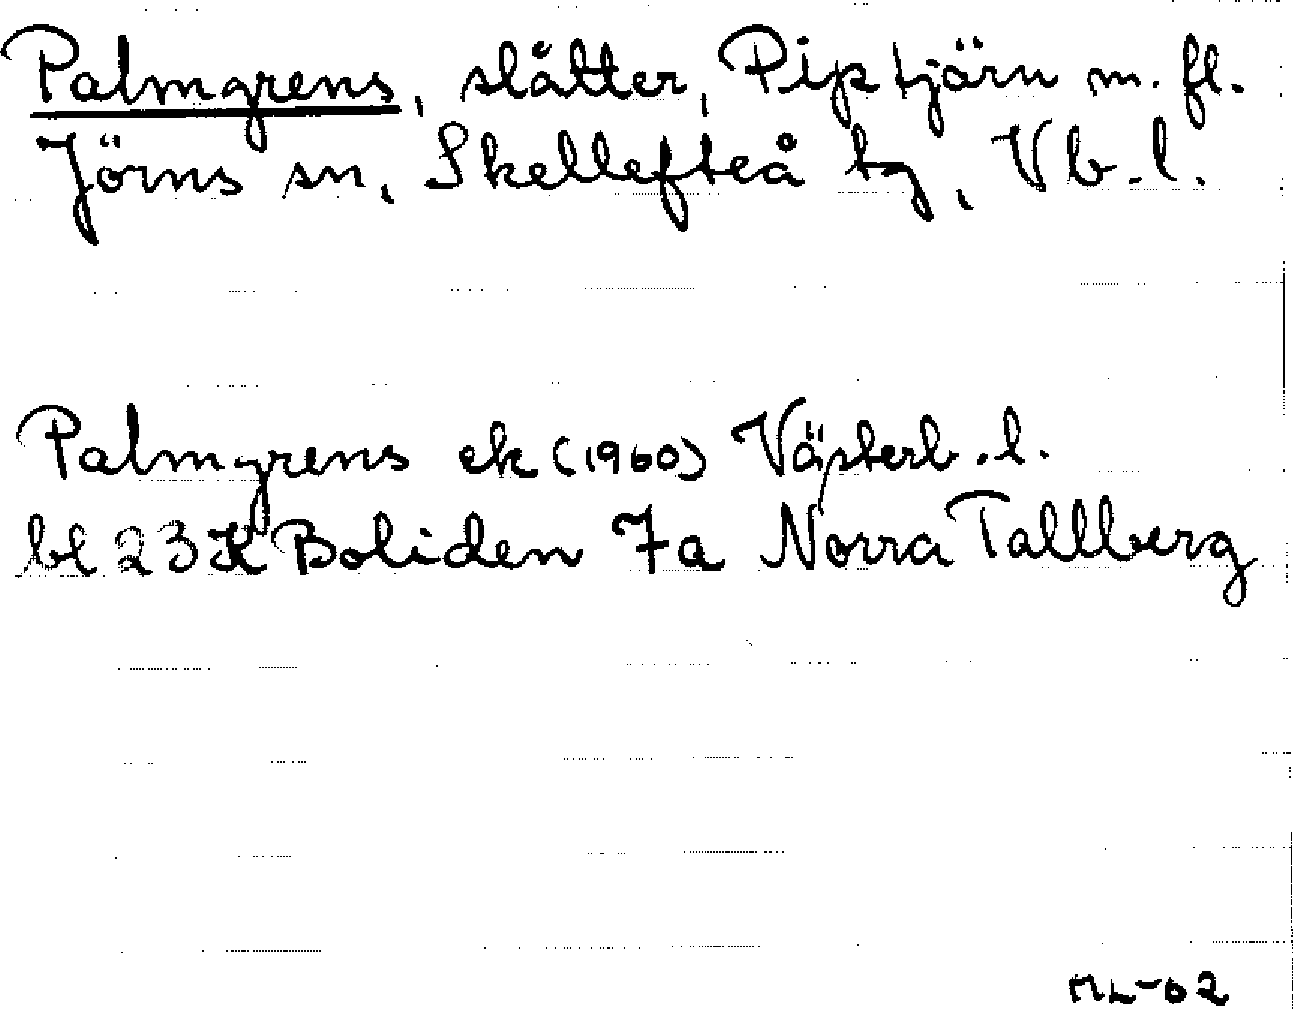 Palmgrens, slåtter, Piptjärn m. fl.
Jörns sn, Skellefteå tg, Vb.l.
Palmgrens ek (1960) Västerb.l.
bl 23 K Boliden 7a Norra Tallberg
ML-62